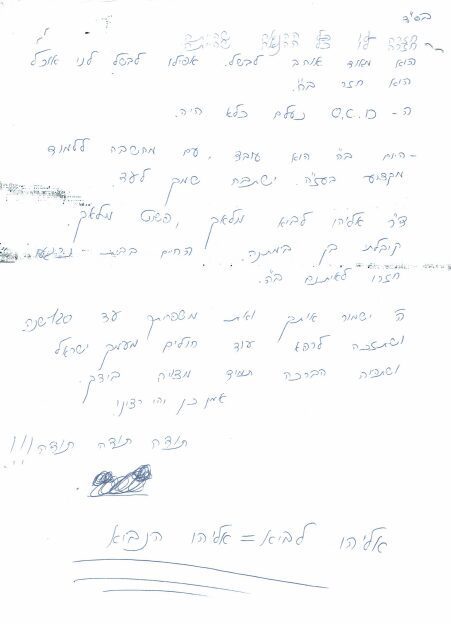 בס"ד
חזרה לו כל ההנאה שהייתה לו
הוא מאוד אוהב לבשל. אפילו לבשל לנו אוכל
הוא חזר בה.
ה- O.C.D נעלם כלא היה.
- היום ב"ה הוא עובד, עם מחשבה ללמוד
מקצוע בעז"ה. ישתבח שמך לעד.
ד"ר אליהו לביא מלאך, פשוט מלאך.
קיבלת בן במתנה. החיים בבית
חזרו לאיתנם ב"ה.
ה' ישמור אותך ואת משפחתך עד 120 שנה.
ושתזכה לרפא עוד חולים מעמך ישראל
ושתהיה הברכה תמיד מצויה בידך.
אמן כן יהי רצון
תודה תודה תודה!!!
אליהו לביא = אליהו הנביא